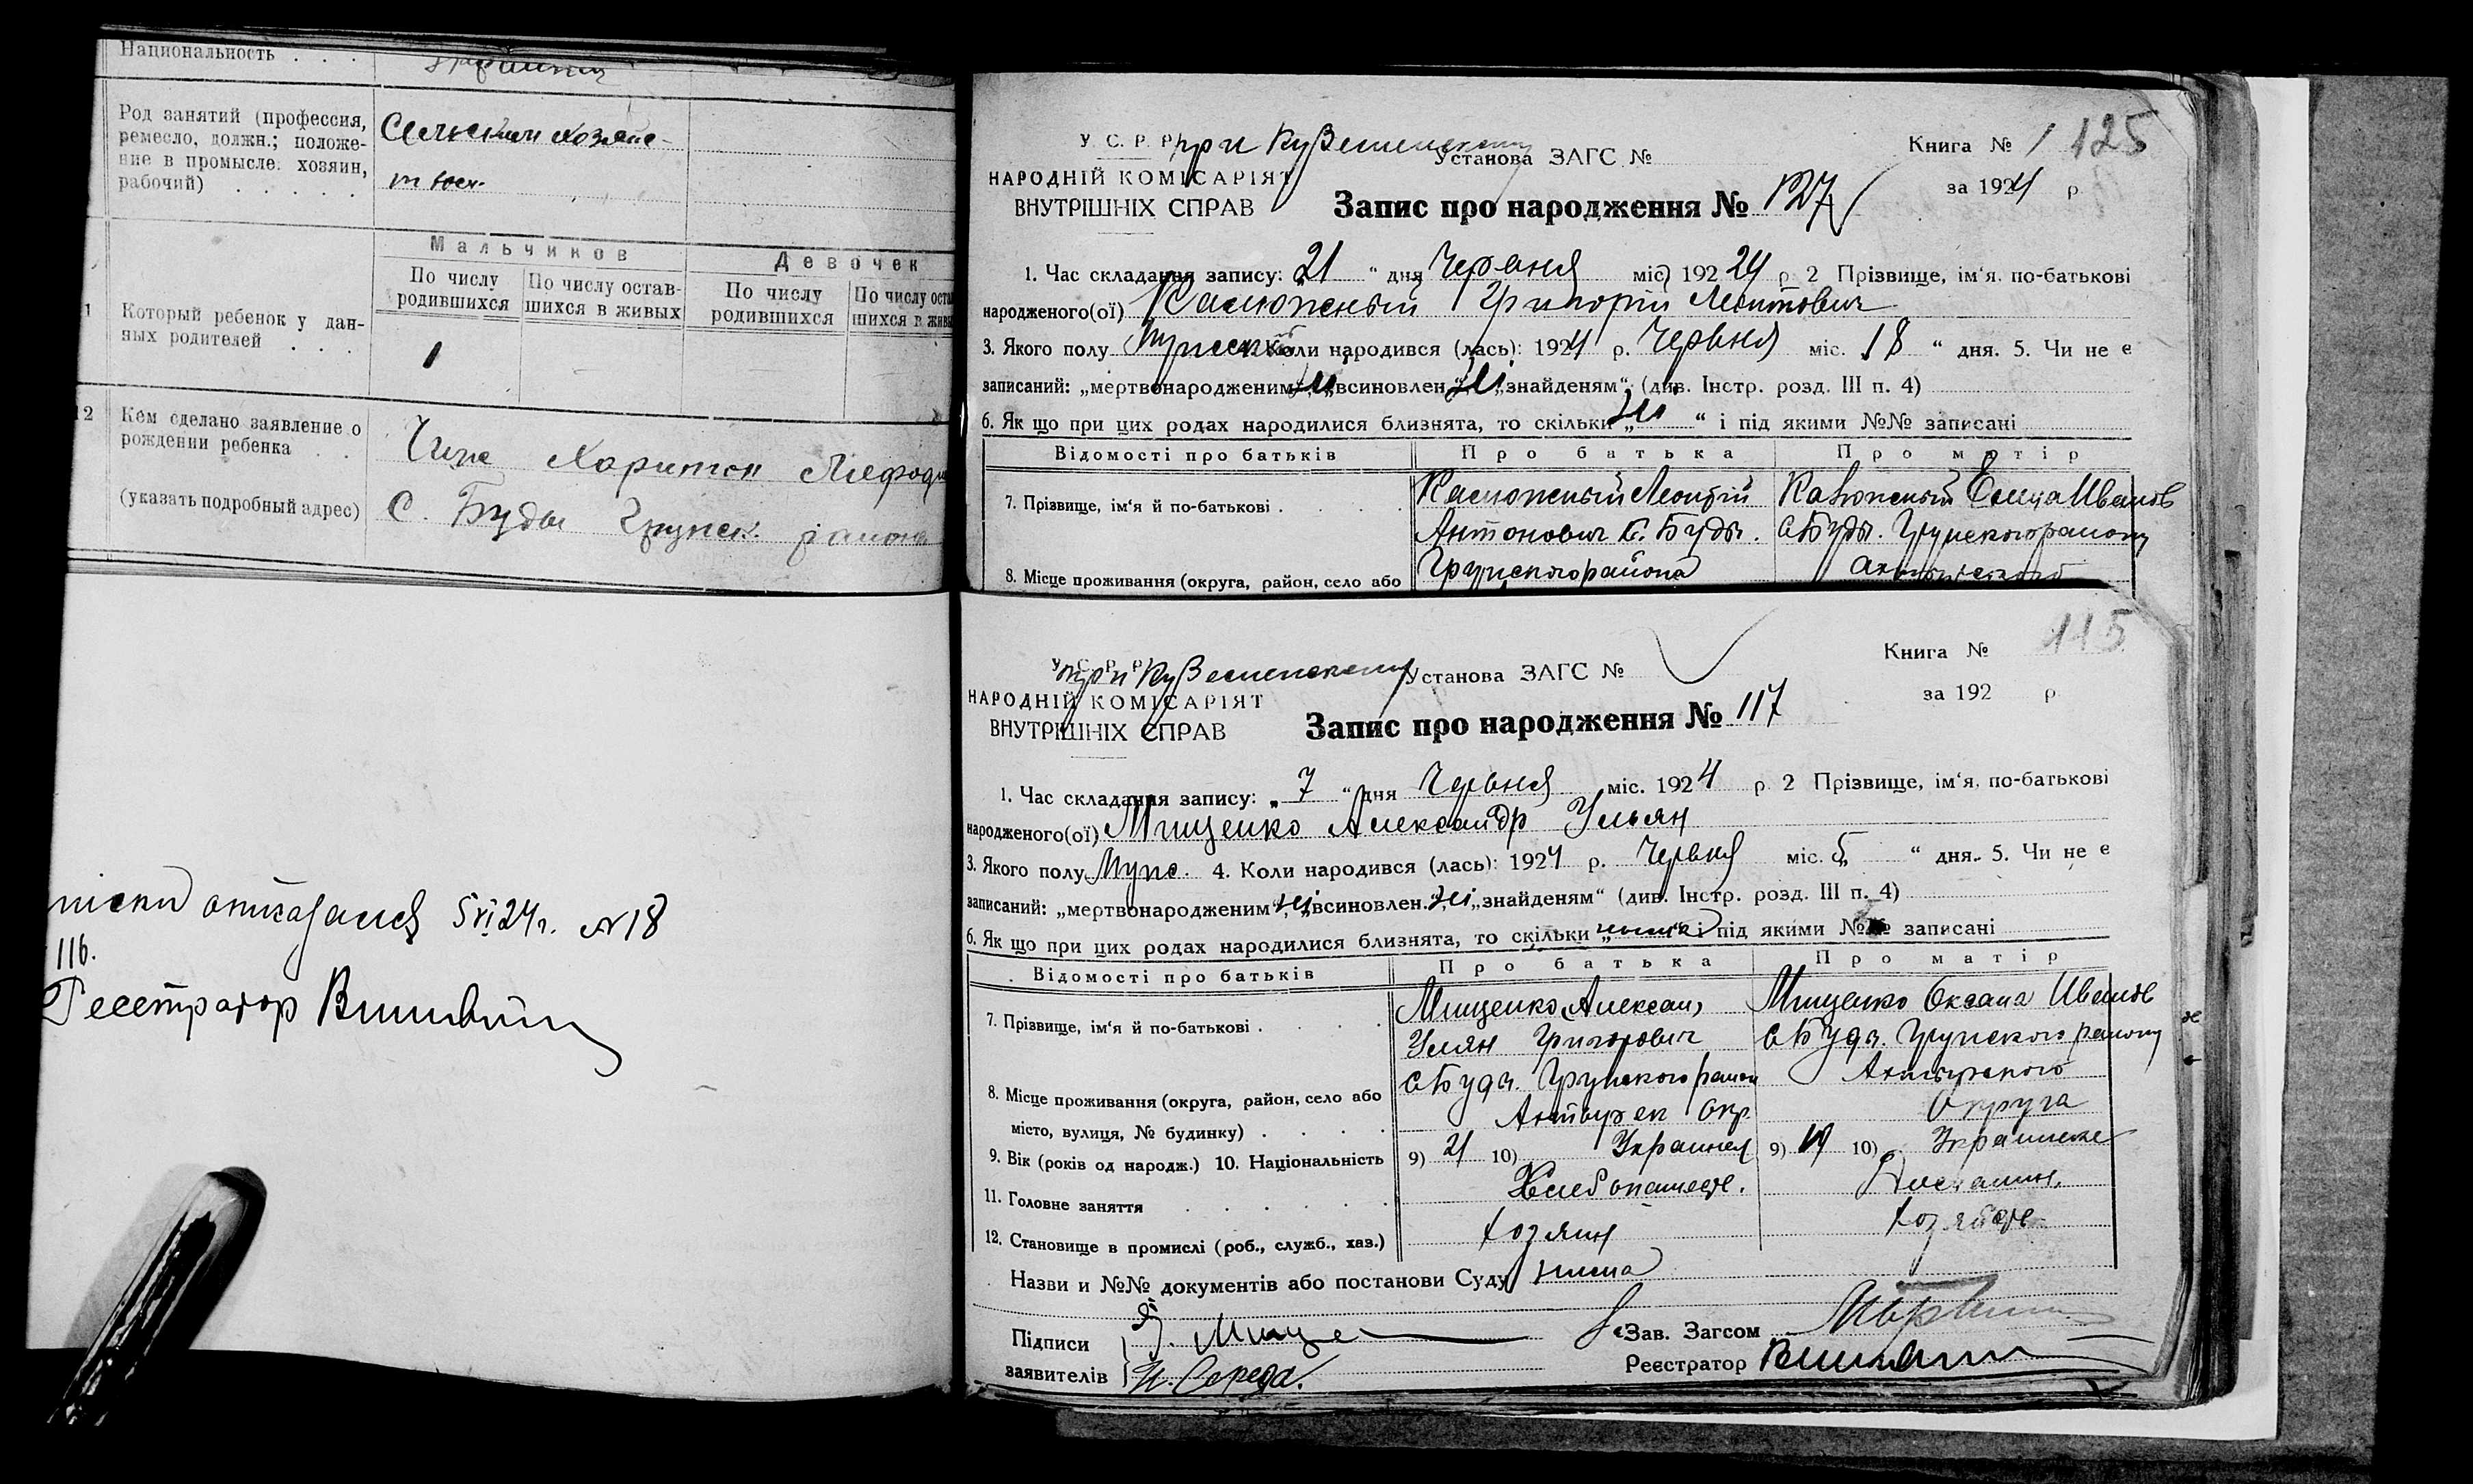 Национальность . . .
Род занятий (профессия,
ремесло, должн.; положе-
ние в промысле: хозяин,
рабочий) . . . . .
Сельским хозяйс-
твом
Мальчиков
Девочек
По числу
родившихся
По числу остав-
шихся в живых
По числу
родившихся
По числу
шихся в
Который ребенок у дан-
ных родителей . . .
1
12
Кем сделано заявление о
рождении ребенка . .
(указать подробный адрес)
Харитон
С. Буды Грунск. района
5 VI 24 г. N 18
116.
Реестратор
У. С. Р. Р.
при
Установа ЗАГС №
Книга № 1
125
НАРОДНІЙ КОМІСАРІЯТ
ВНУТРІШНІХ СПРАВ
за 1924 р.
Запис про народження № 127
1. Час складання запису: „21“ дня Червня міс. 1924 р. 2 Прізвище, ім‘я, по-батькові
народженого(ої) Григорій Леонтович
3. Якого полу Мужеск. 4. Коли народився (лась): 1924 р. Червня міс. 18 “ дня. 5. Чи не є
записаний: „мертвонародженим“ ні, „всиновлен.“ ні, „знайденям“ (див. Інстр. розд. III п. 4)
6. Як що при цих родах народилися близнята, то скільки „ні“ і під якими №№ записані
Відомості про батьків
Про батька
Про матір
7. Прізвище, ім‘я й по-батькові . . . .
Леонтій
Антонович с. Буды.
Грунского района
Иванов
с Буды. Грунского району
8. Місце проживання (округа, район, село або
115
У. С. Р. Р.
при
Установа ЗАГС №
Книга №
НАРОДНІЙ КОМІСАРІЯТ
ВНУТРІШНІХ СПРАВ
за 192 р.
Запис про народження № 117
1. Час складання запису: „7“ дня Червня міс. 1924 р. 2 Прізвище, ім‘я, по-батькові
народженого(ої) Мищенко Александр Ульян
3. Якого полу Муже. 4. Коли народився (лась): 1924 р. Червня міс. 5 “ дня. 5. Чи не є
записаний: „мертвонародженим“ ні, „всиновлен.“ ні, „знайденям“ (див. Інстр. розд. III п. 4)
6. Як що при цих родах народилися близнята, то скільки „нима“ і під якими №№ записані
Відомості про батьків
Про батька
Про матір
7. Прізвище, ім‘я й по-батькові . . . .
Мищенко
Улян Григорович
Мищенко Оксана Иванов
с Буды. Грунского району
8. Місце проживання (округа, район, село або
місто, вулиця, № будинку) . . . .
с Буды. Грунского район
Ахтырск Окр.
Ахтырского
Округа
9. Вік (років од народж.) 10. Національність
9) 21 10) Украинец
9) 19 10) Украинске
11. Головне заняття . . . . . .
Хлебопашест.
12. Становище в промислі (роб., служб., хаз.)
хозяин
Назви и №№ документів або постанови Суду нима
Підписи
заявителів
И. Середа.
Зав. Загсом
Реєстратор